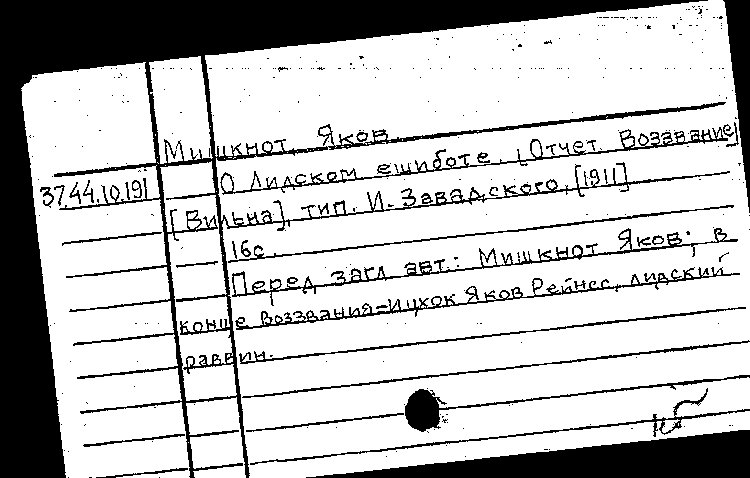 Мишкнот, Яков.
37.44.10.191
О Лидском ешиботе. [Отчет. Воззвание]
[Вильна], тип. И. Завадского, [1911]
16с.
Перед загл авт.: Мишкнот Яков; в
конце воззвания=Ицхок Яков Рейнес, лидский
раввин.